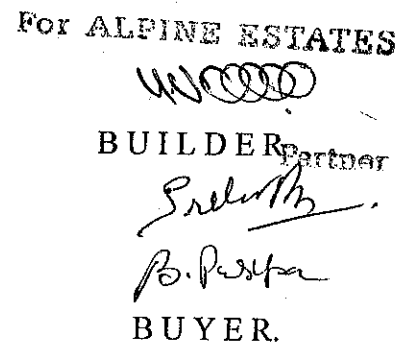 For ALPINE ESTATES
BUILDER Partner
B. Puspa
BUYER.